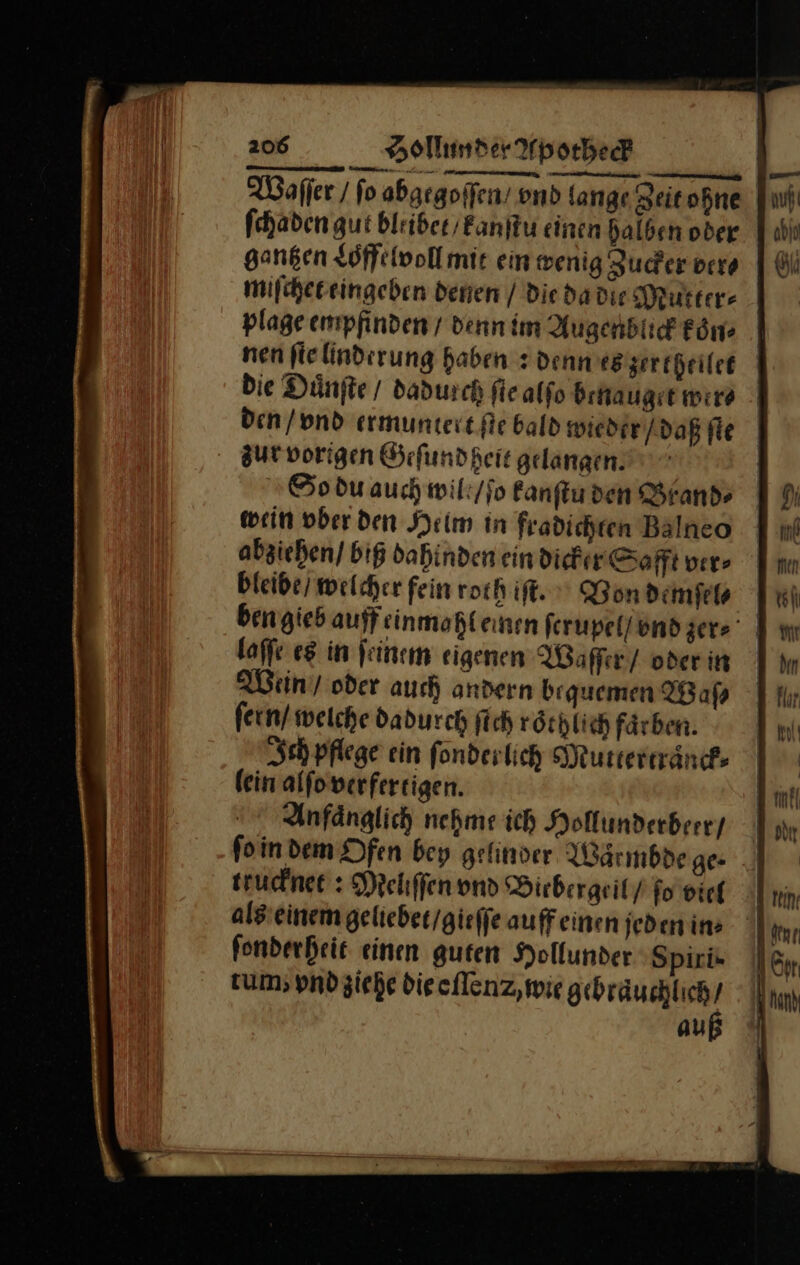 206 Hollunder Apotheck
Waſſer / ſo abgegoſſen / vnd lange Zeit ohne
ſchaden gut bleibet / kanſtu einen halben oder
gantzen Loͤffelvoll mit ein wenig Zucker ver⸗
miſchet eingeben denen / die da die Mutter⸗
plage empfinden / denn im Augenblick koͤn⸗
nen ſie linderung haben : denn es zertheilet
die Duͤnſte / dadurch ſie alſo benauget wer⸗
den / vnd ermuntert ſie bald wieder / daß ſie
zur vorigen Geſundheit gelangen.
So du auch wilt / ſo kanſtu den Brand⸗
wein vber den Helm in fradichten Balneo
abziehen / biß dahinden ein dicker Safft ver⸗
bleibe / welcher fein roth iſt. Von demſel⸗
ben gieb auff einmahl einen ſcrupel / vnd zer⸗
laſſe es in ſeinem eigenen Waſſer / oder in
Wein / oder auch andern bequemen Waſ⸗
ſern / welche dadurch ſich roͤthlich faͤrben.
Ich pflege ein ſonderlich Muttertraͤnck⸗
lein alſo verfertigen.
Anfaͤnglich nehme ich Hollunderbeer /
ſo in dem Ofen bey gelinder Waͤrmbde ge⸗
trucknet : Meliſſen vnd Biebergeil / ſo viel
als einem geliebet / gieſſe auff einen jeden in⸗
ſonderheit einen guten Hollunder Spiri-
tum, vnd ziehe die eſſenz, wie gebraͤuchlich /
auß